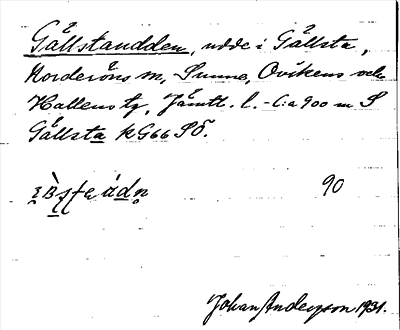 Gällstaudden, udde i Gällsta,
Norderöns sn, Sunne, Ovikens och
Hallens tg, Jämtl. l. - C:a 900 m S
Gällsta kG66 SÖ.
90
Johan Anderson 1931.